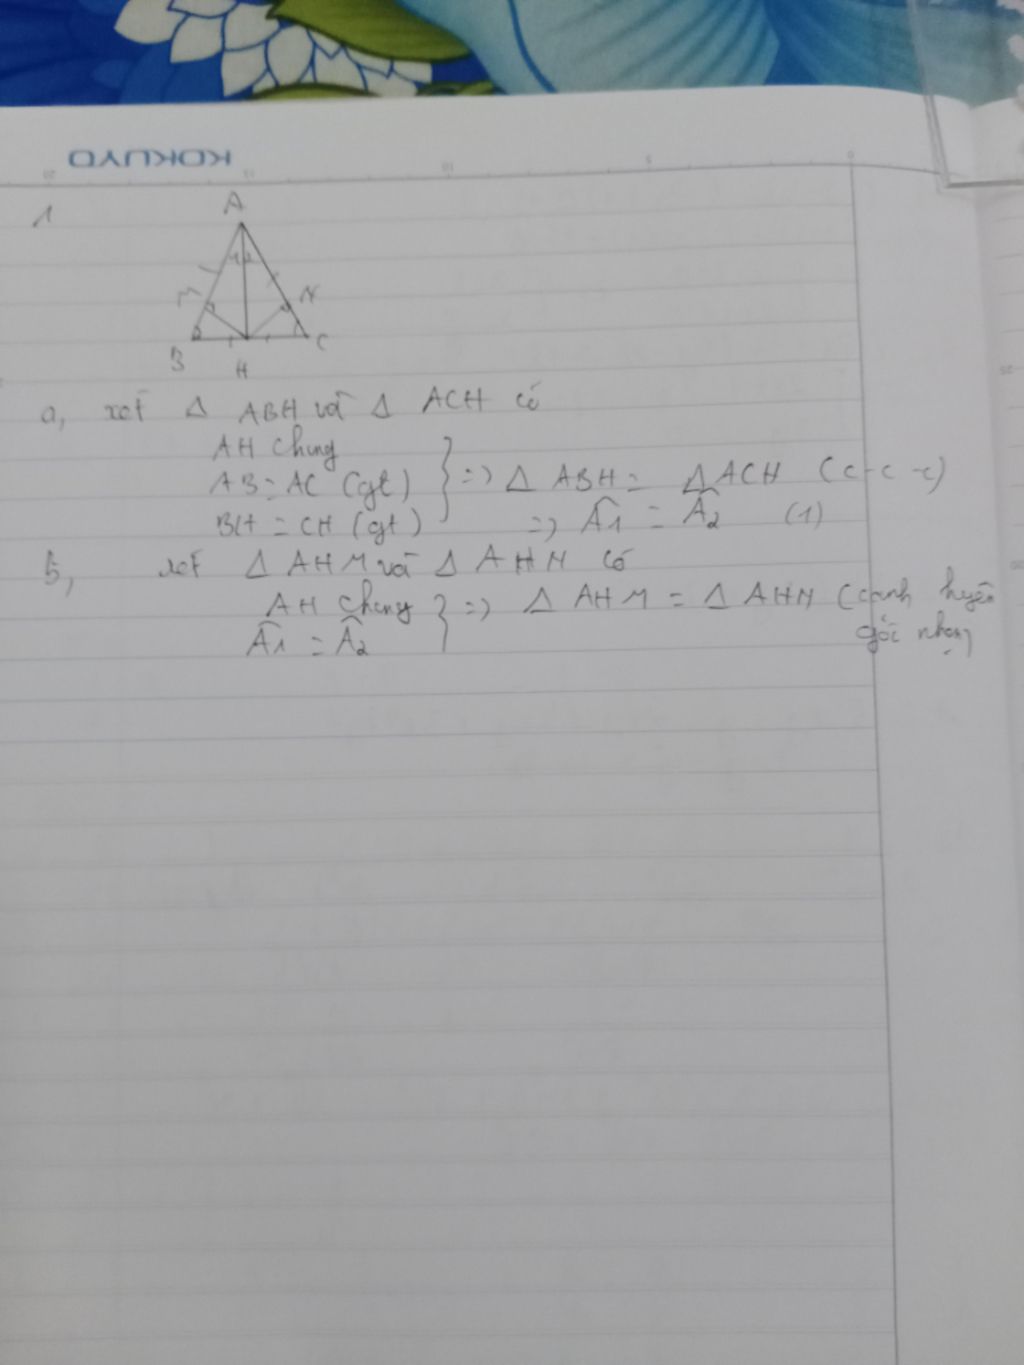 KOKUYO
10
5
0
1
A
M
N
B
H
C
a, xét Δ ABH và Δ ACH có
AH chung
AB = AC (gt)
BH = CH (gt)
=> Δ ABH = Δ ACH (c-c-c)
=> Â1 = Â2 (1)
b, xét Δ AHM và Δ AHN có
AH chung
Â1 = Â2
=> Δ AHM = Δ AHN (cạnh huyền
góc nhọn